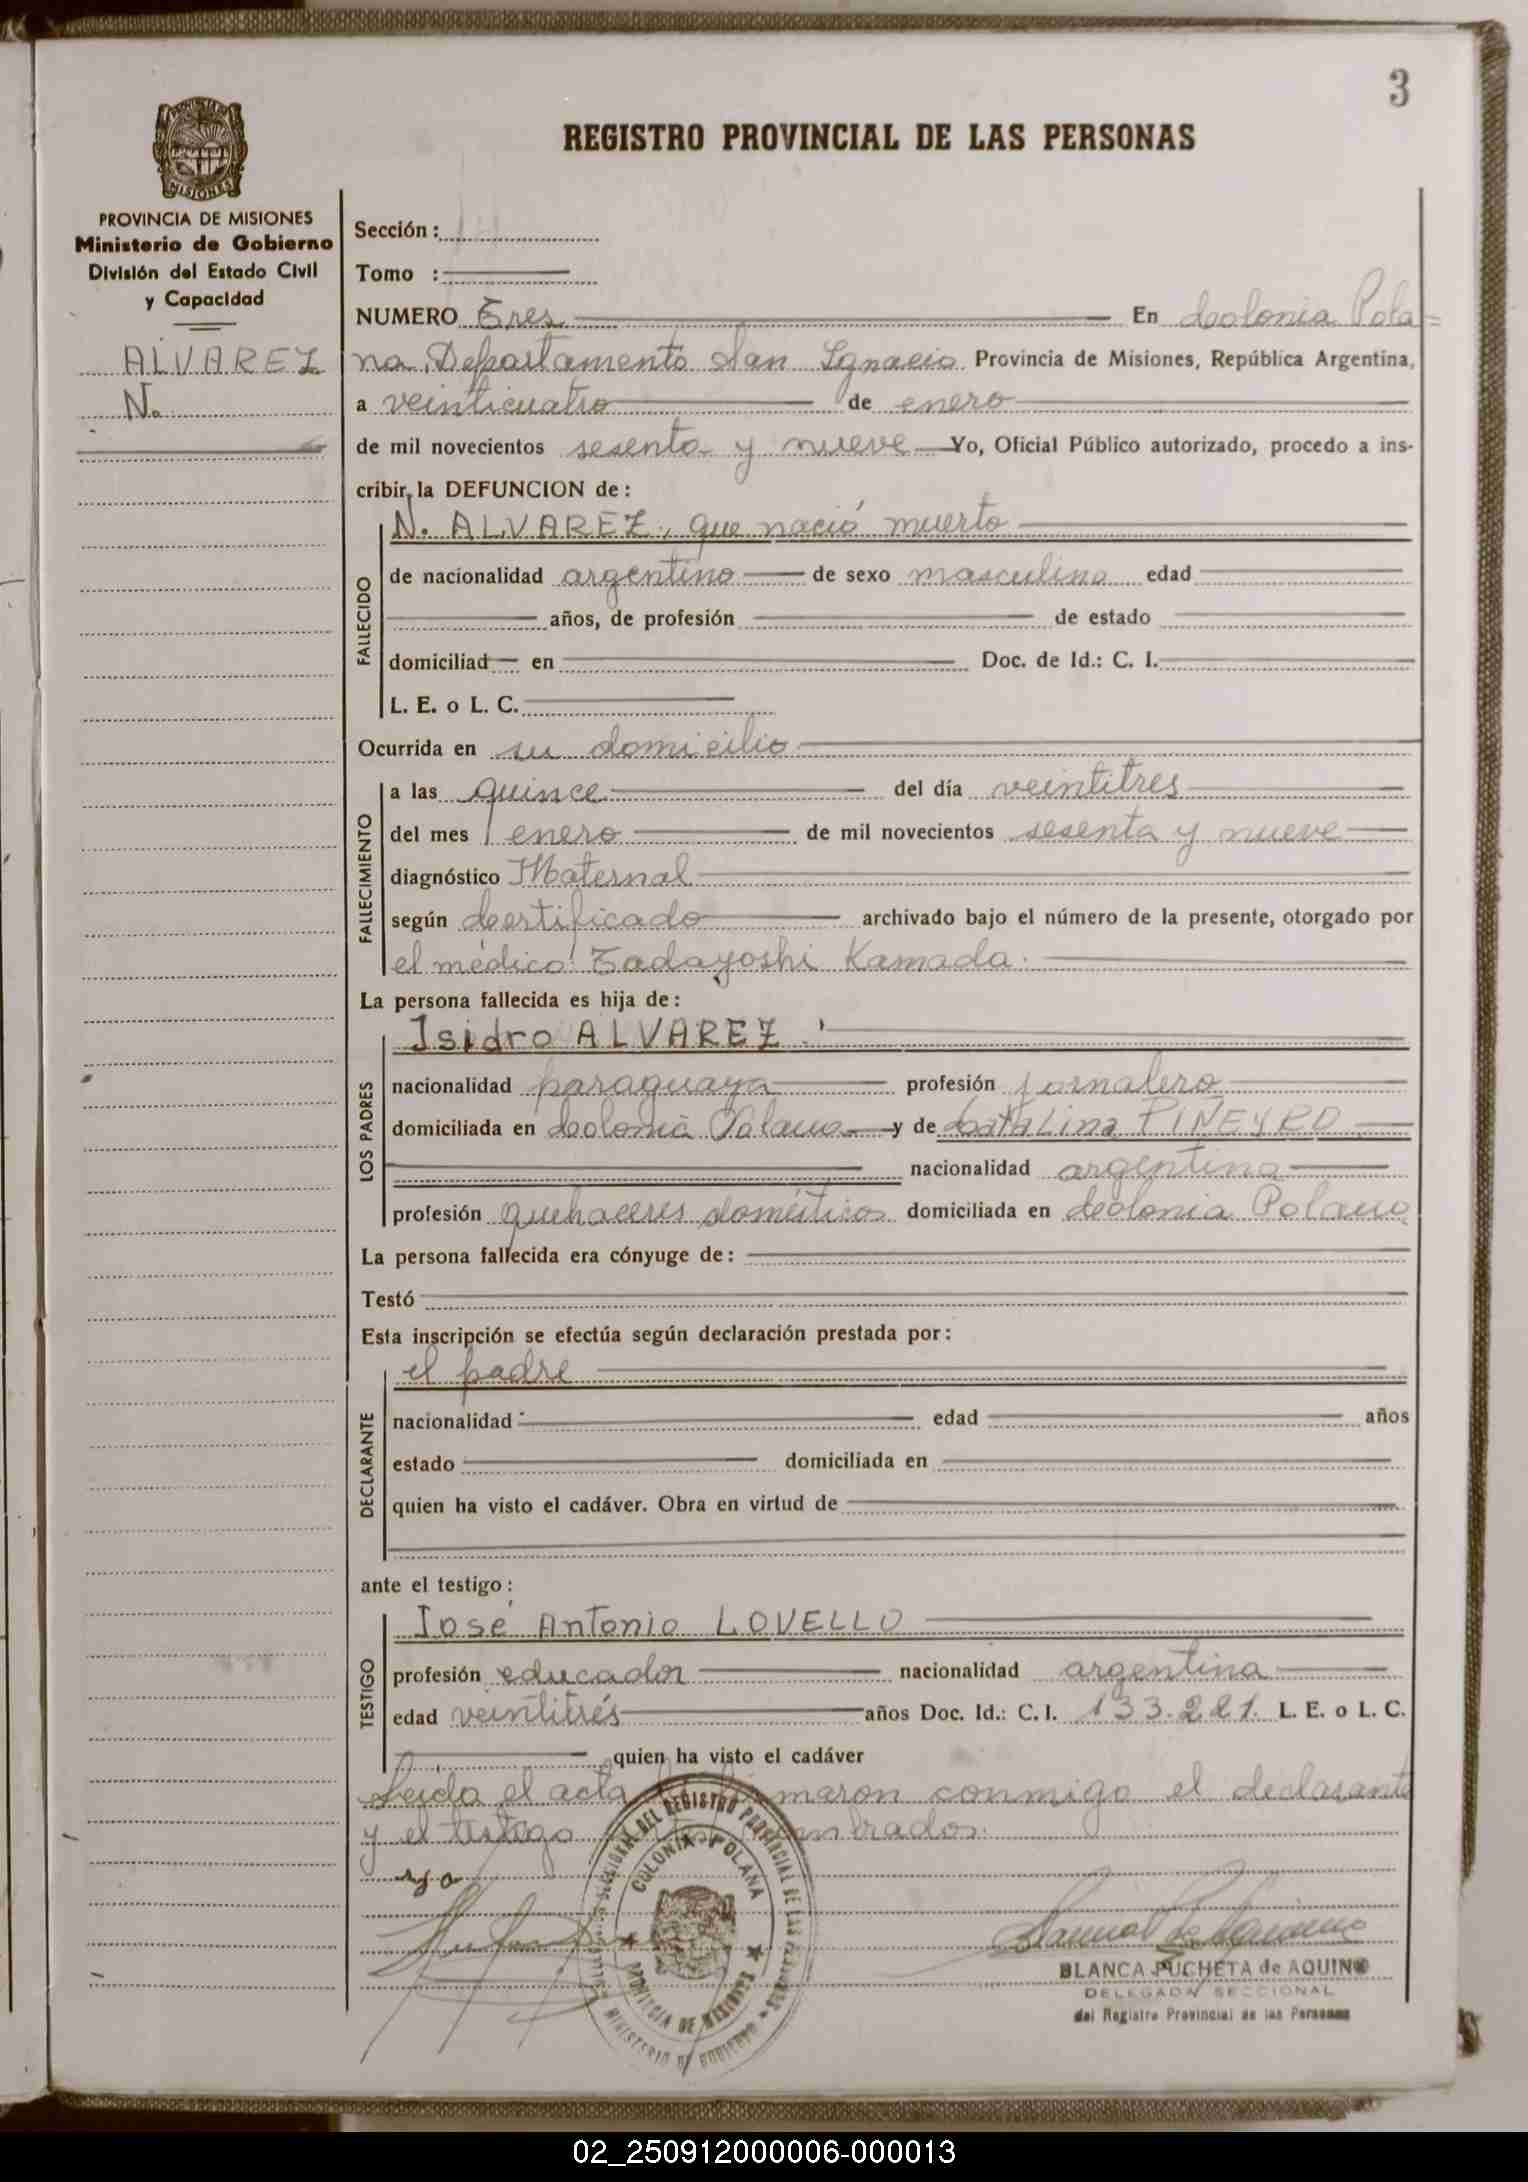 3
REGISTRO PROVINCIAL DE LAS PERSONAS
PROVINCIA DE MISIONES
MISIONES
PROVINCIA DE MISIONES
Ministerio de Gobierno
División del Estado Civil
y Capacidad
ALVAREZ
N.
Sección :
Tomo :
NUMERO Tres En Colonia Pola=
na, Departamento San Ignacio Provincia de Misiones, República Argentina,
a veinticuatro de enero
de mil novecientos sesenta y nueve Yo, Oficial Público autorizado, procedo a ins-
cribir la DEFUNCION de :
N. ALVAREZ, que nació muerto
FALLECIDO
de nacionalidad argentino de sexo masculino edad
años, de profesión de estado
domiciliad en Doc. de Id.: C. I.
L. E. o L. C.
Ocurrida en su domicilio
FALLECIMIENTO
a las quince del día veintitres
del mes enero de mil novecientos sesenta y nueve
diagnóstico Maternal
según Certificado archivado bajo el número de la presente, otorgado por
el médico Tadayoshi Kamada.
La persona fallecida es hija de :
LOS PADRES
Isidro ALVAREZ.
nacionalidad paraguaya profesión jornalero
domiciliada en Colonia Polana y de Catalina PIÑEYRO
nacionalidad argentina
profesión quehaceres domésticos domiciliada en Colonia Polana
La persona fallecida era cónyuge de :
Testó
Esta inscripción se efectúa según declaración prestada por :
DECLARANTE
el padre
nacionalidad edad años
estado domiciliada en
quien ha visto el cadáver. Obra en virtud de
ante el testigo :
TESTIGO
José Antonio LOVELLO
profesión educador nacionalidad argentina
edad veintitrés años Doc. Id.: C. I. 133.221. L. E. o L. C.
quien ha visto el cadáver
Leída el acta la firmaron conmigo el declarante
y el testigo nombrados.
SECCIONAL DEL REGISTRO PROVINCIAL DE LAS PERSONAS
COLONIA POLANA
PROVINCIA DE MISIONES
MINISTERIO DE GOBIERNO
BLANCA PUCHETA de AQUINO
DELEGADA SECCIONAL
del Registro Provincial de las Personas
02_250912000006-000013